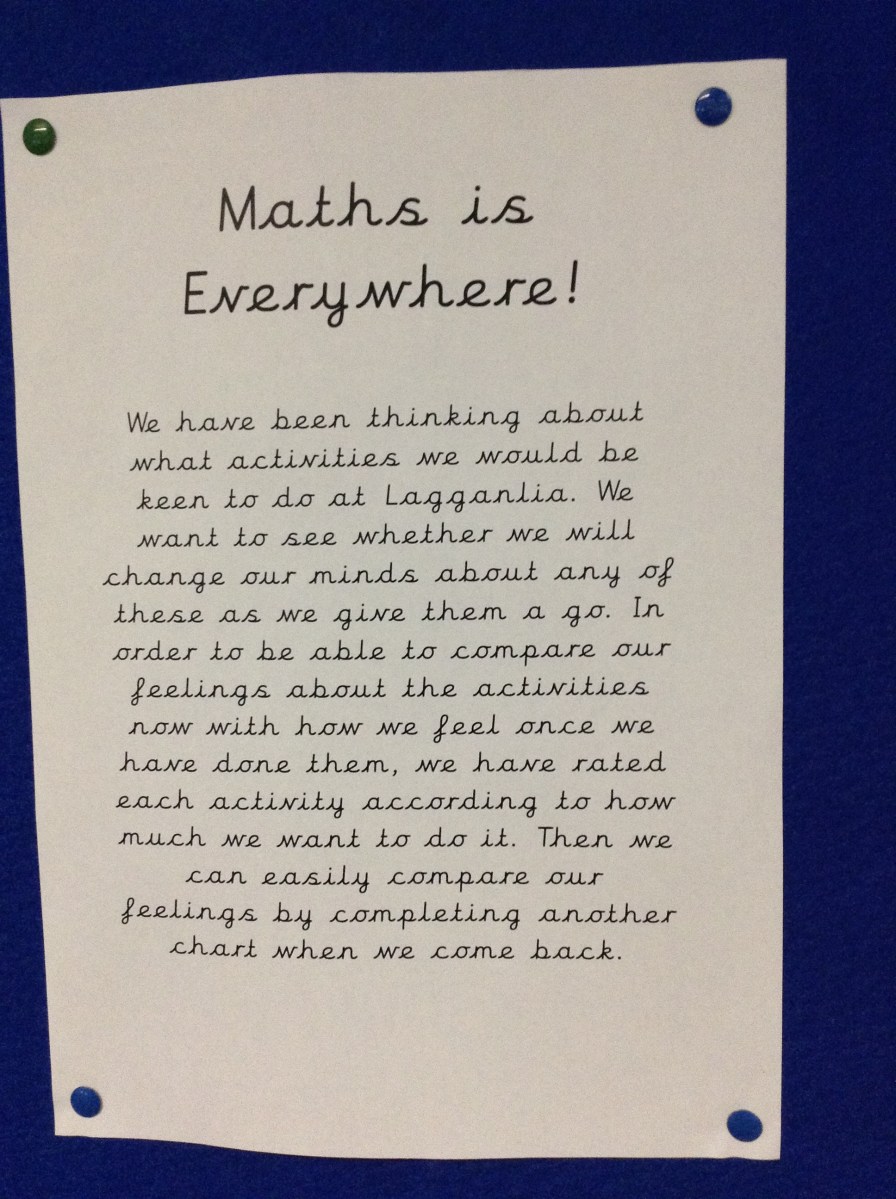 Maths is
Everywhere!
We have been thinking about
what activities we would be
keen to do at Lagganlia. We
want to see whether we will
change our minds about any of
these as we give them a go. In
order to be able to compare our
feelings about the activities
now with how we feel once we
have done them, we have rated
each activity according to how
much we want to do it. Then we
can easily compare our
feelings by completing another
chart when we come back.